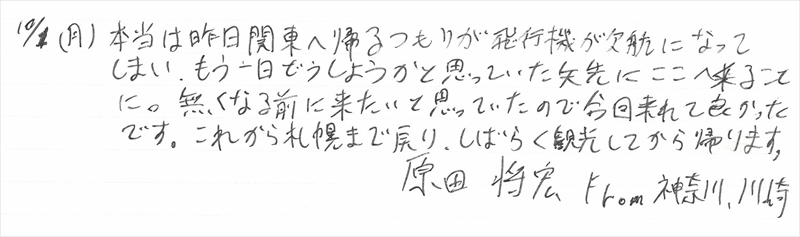 10/1(月) 本当は昨日関東へ帰るつもりが飛行機が欠航になって
しまい、もう一日どうしようかと思っていた矢先にここへ来ること
に。無くなる前に来たいと思っていたので今回来れて良かった
です。これから札幌まで戻り、しばらく観光してから帰ります。
原田 将宏 From 神奈川、川崎